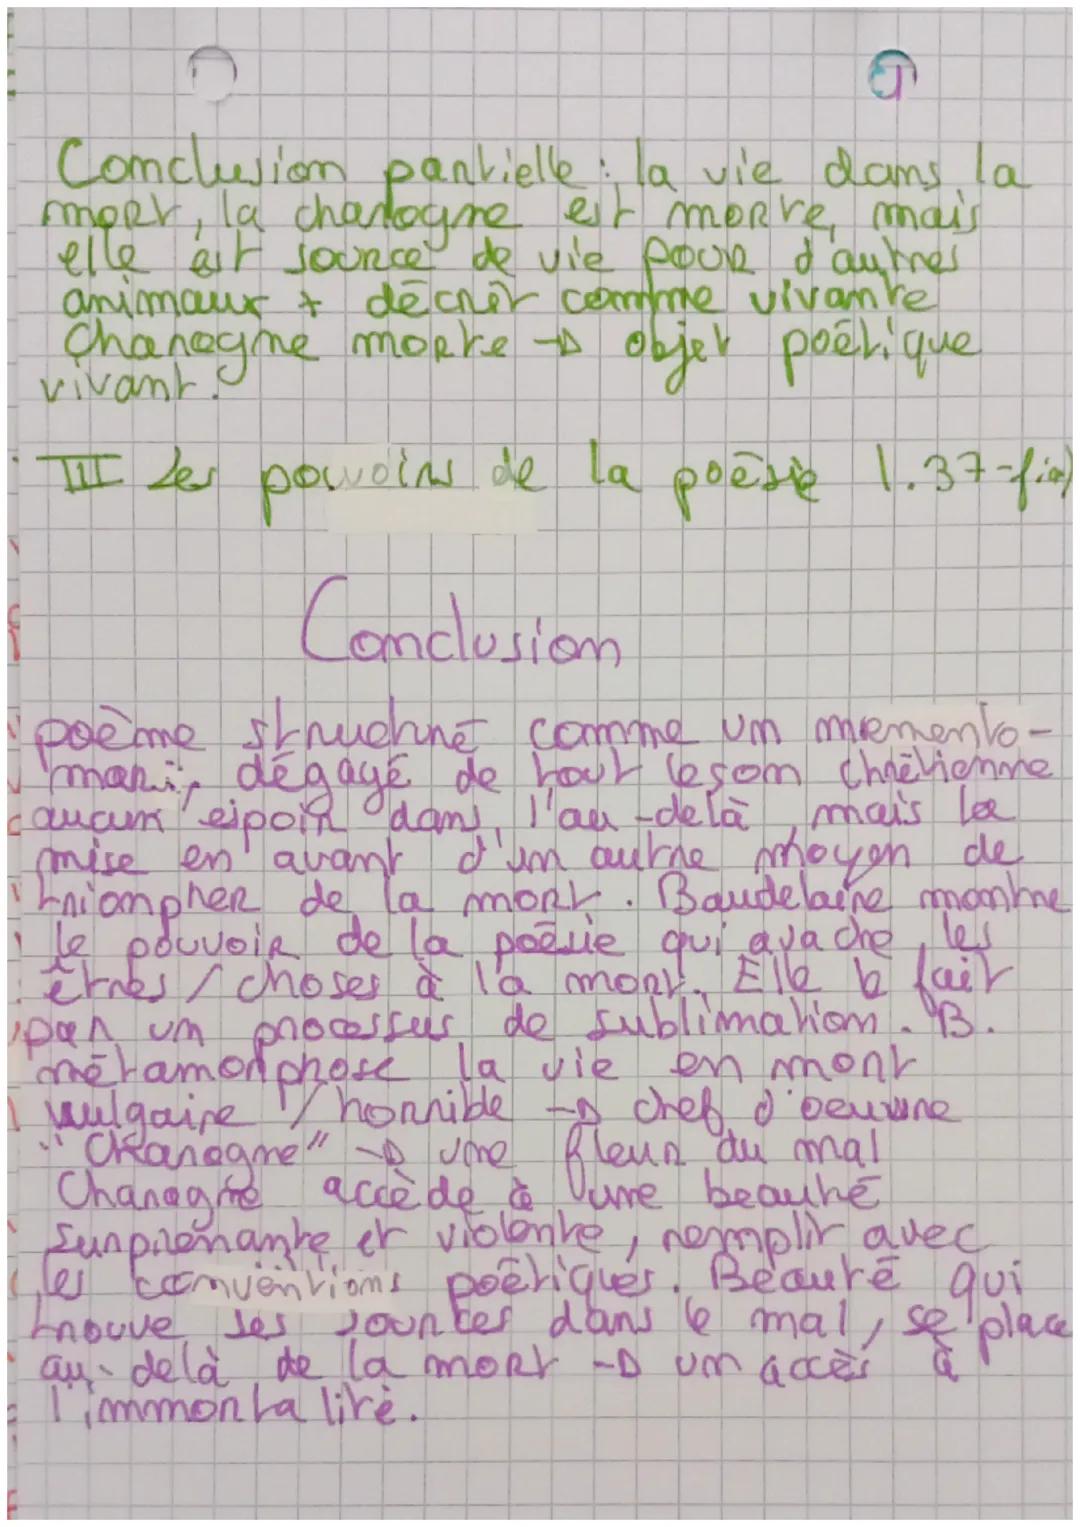 Conclusion partielle : la vie dans la
mort, la charogne est morte, mais
elle est source de vie pour d'autres
animaux + décrit comme vivante
Charogne morte → objet poétique
vivant.
III Les pouvoirs de la poésie l.37-fin)
Conclusion
poème structuré comme un memento-
mori, dégagé de tout leçon chrétienne
aucun espoir dans l'au-delà, mais la
mise en avant d'un autre moyen de
triompher de la mort. Baudelaire montre
le pouvoir de la poésie qui arache les
êtres / choses à la mort. Elle le fait
par un processus de sublimation. B.
métamorphose la vie en mort
vulgaire / horrible → chef d'oeuvre
"Charogne" → une fleur du mal
Charogne accède à une beauté
surprenante et violente, remplit avec
les conventions poétiques. Beauté qui
trouve ses sources dans le mal, se place
au-delà de la mort → un accès à
l'immortalité.